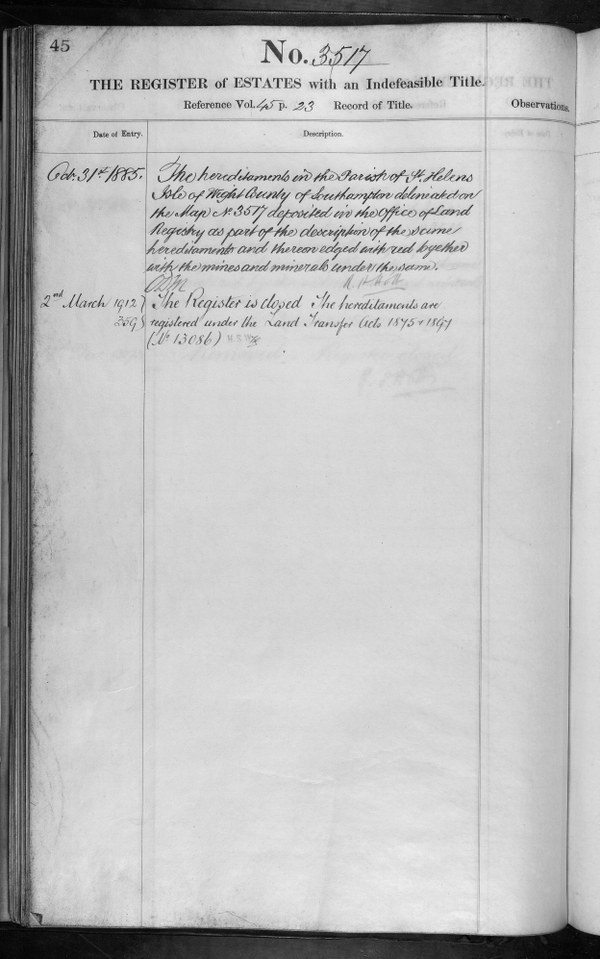 45
No. 3517
THE REGISTER of ESTATES with an Indefeasible Title.
Reference Vol. 45 p. 23 Record of Title.
Observations.
Date of Entry.
Description.
Oct. 31st 1885.
The hereditaments in the Parish of St. Helens
Isle of Wight County of Southampton delineated on
the Map No 3517 deposited in the Office of Land
Registry as part of the description of the same
hereditaments and thereon edged with red together
with the mines and minerals under the same.
2nd March 1912
359
The Register is closed The hereditaments are
registered under the Land Transfer Acts 1875 & 1897
(No 13086)